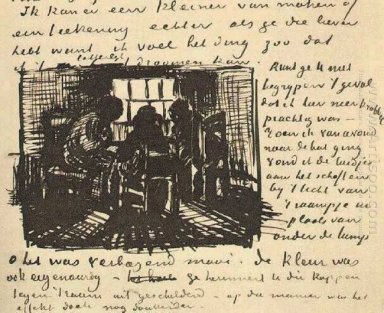 Ik kan er een kleiner van maken of
een teekening echter als ge die liever
hebt want ik voel het ding zoo dat
ik 't letterlijk droomen kan.
Kunt ge U niet
begrypen 't geval
dat ik kan neer
prachtig was –
toen ik van avond
naar de hut ging
vond ik de luidjes
aan het schaften
by 't licht van
't raampje in
plaats van
onder de lamp
o het was verbazend mooi. de kleur was
ook eigenaardig – ge herinnert u die koppen
tegen 't raam uit geschilderd – op die manier was het
effekt doch nog donkerder.